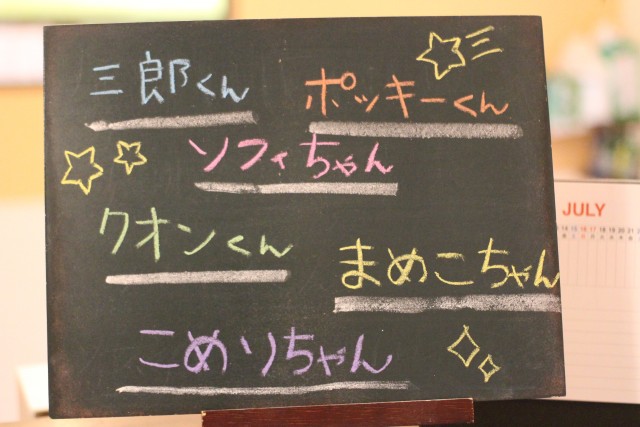 三郎くん
ポッキーくん
ソフィちゃん
クオンくん
まめこちゃん
こめりちゃん
JULY